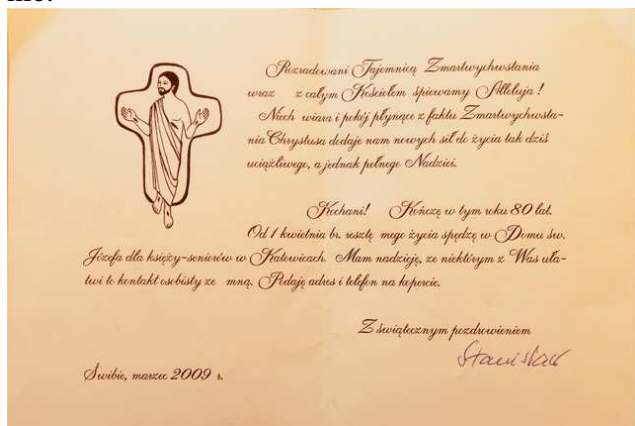 nie.
Rozradowani Tajemnicą Zmartwychwstania
wraz z całym Kościołem śpiewamy Alleluja!
Niech wiara i pokój płynące z faktu Zmartwychwsta-
nia Chrystusa dodaje nam nowych sił do życia tak dziś
uciążliwego, a jednak pełnego Nadziei.
Kochani! Kończę w tym roku 80 lat.
Od 1 kwietnia br. resztę mego życia spędzę w Domu św.
Józefa dla księży-seniorów w Katowicach. Mam nadzieję, ze niektórym z Was uła-
twi to kontakt osobisty ze mną. Podaję adres i telefon na kopercie.
Z świątecznym pozdrowieniem
Stanisław
Świbie, marzec 2009 r.